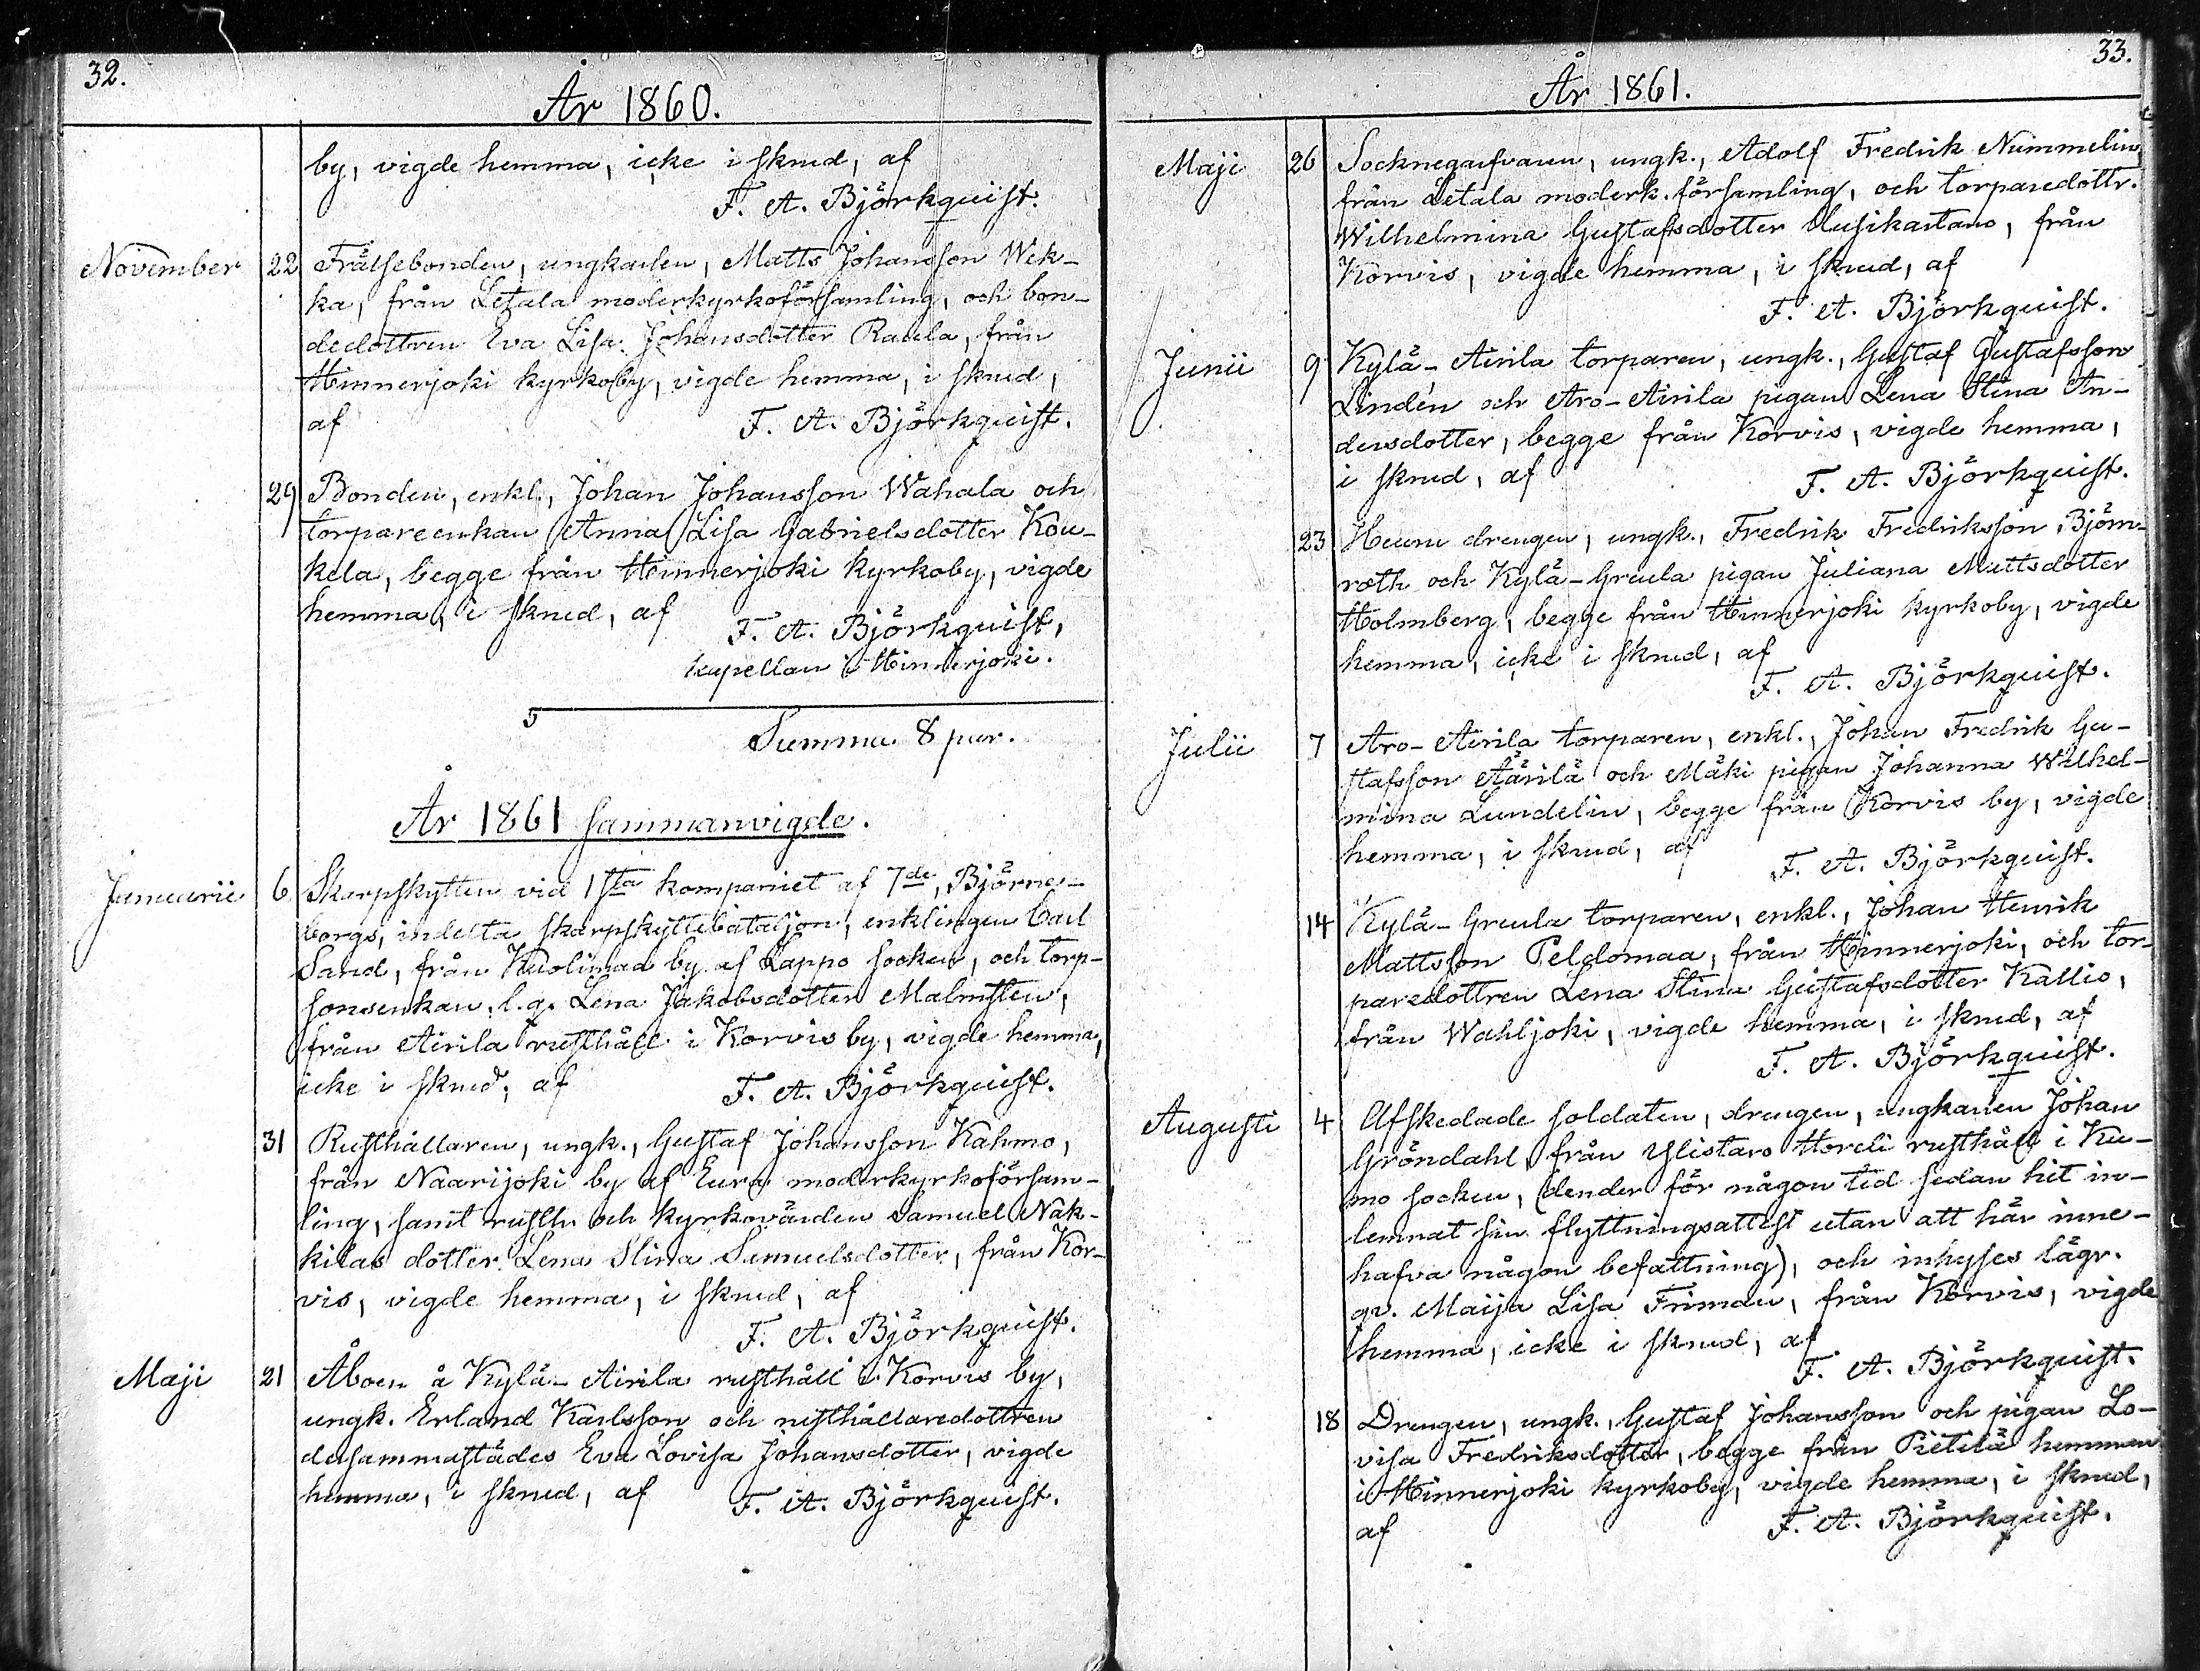 32.
År 1860.
by, vigde hemma, icke i skrud, af
F. A. Björkquist.
November 22 Frälsebonden, ungkarlen, Matts Johansson Wek-
ka, från Letala moderkyrkoförsamling, och bon-
dedottren Eva Lisa Johansdotter Raula, från
Hinnerjoki kyrkoby, vigde hemma, i skrud,
af F. A. Björkquist.
29 Bonden, enkl., Johan Johansson Wahala och
torpareenkan Anna Lisa Gabrielsdotter Kou-
kela, begge från Hinnerjoki kyrkoby, vigde
hemma, i skrud, af F. A. Björkquist,
kapellan i Hinnerjoki.
5
Summa 8 par.
År 1861 sammanvigde.
Januarii 6 Skarpskytten vid 1sta kompaniet af 7de, Björne-
borgs, indelta skarpskyttebataljon, enklingen Carl
Sand, från Kuolimaa by af Lappo socken, och torp-
sonsenkan, l. q. Lena Jakobsdotter Malmsten,
från Airila rusthåll i Korvis by, vigde hemma,
icke i skrud, af F. A. Björkquist.
31 Rusthållaren, ungk., Gustaf Johansson Kahmo,
från Naarijoki by af Eura moderkyrkoförsam-
ling, samt rusth. och kyrkovärden Samuel Nak-
kilas dotter Lena Stina Samuelsdotter, från Kor-
vis, vigde hemma, i skrud, af
F. A. Björkquist.
Maji 21 Åboen å Kylä-Airila rusthåll i Korvis by,
ungk. Erland Karlsson och rusthållaredottren
dersammastädes Eva Lovisa Johansdotter, vigde
hemma, i skrud, af F. A. Björkquist.
33.
År 1861.
Maji 26 Socknegarfvaren, ungk., Adolf Fredrik Nummelin,
från Letala moderk.församling, och torparedottr.
Wilhelmina Gustafsdotter Uusikartano, från
Korvis, vigde hemma, i skrud, af
F. A. Björkquist.
Junii 9 Kylä-Airila torparen, ungk., Gustaf Gustafsson
Lindén och Aro-Airila pigan Lena Stina An-
dersdotter, begge från Korvis, vigde hemma,
i skrud, af F. A. Björkquist.
23 Heuru drengen, ungk., Fredrik Fredriksson Björn-
roth och Kylä-Greula pigan Juliana Mattsdotter
Holmberg, begge från Hinnerjoki kyrkoby, vigde
hemma, icke i skrud, af
F. A. Björkquist.
Julii 7 Aro-Airila torparen, enkl., Johan Fredrik Gu-
stafsson Äärilä och Mäki pigan Johanna Wilhel-
mina Lundelin, begge från Korvis by, vigde
hemma, i skrud, af F. A. Björkquist.
14 Kylä-Greula torparen, enkl., Johan Henrik
Mattsson Peldomaa, från Hinnerjoki, och tor-
paredottren Lena Stina Gustafsdotter Kallio,
från Wahljoki, vigde hemma, i skrud, af
F. A. Björkquist.
Augusti 4 Afskedade soldaten, drengen, ungkarlen Johan
Gröndahl, från Ylistaro Horeli rusthåll i Ku-
mo socken, (dender för någon tid sedan hit in-
lemnat sin flyttningsattest utan att här inne-
hafva någon befattning), och inhyses lägr.
qv. Maija Lisa Friman, från Korvis, vigde
hemma, icke i skrud, af
F. A. Björkquist.
18 Drengen, ungk., Gustaf Johansson och pigan Lo-
visa Fredriksdotter, begge från Pietilä hemman
i Hinnerjoki kyrkoby, vigde hemma, i skrud,
af F. A. Björkquist.